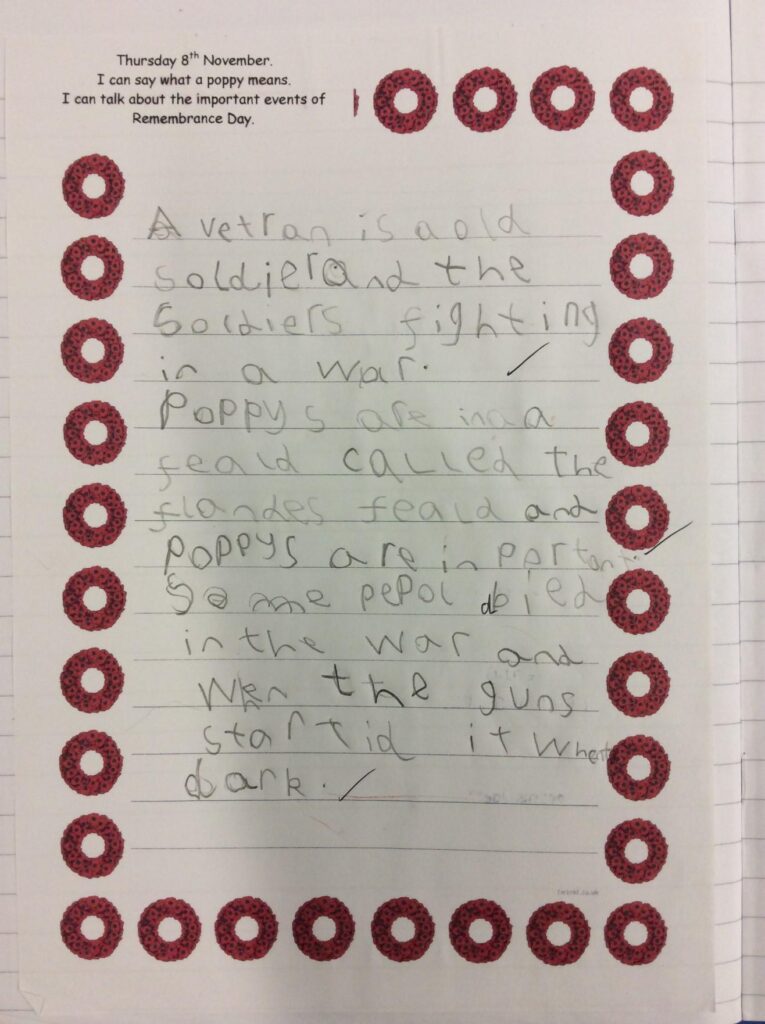 Thursday 8th November.
I can say what a poppy means.
I can talk about the important events of
Remembrance Day.
A vetran is a old
soldier and the
Soldiers fighting
in a war.
Poppys are in a
feald called the
flandes feald and
poppys are in portant.
Some pepol died
in the war and
wen the guns
startid it whent
dark.